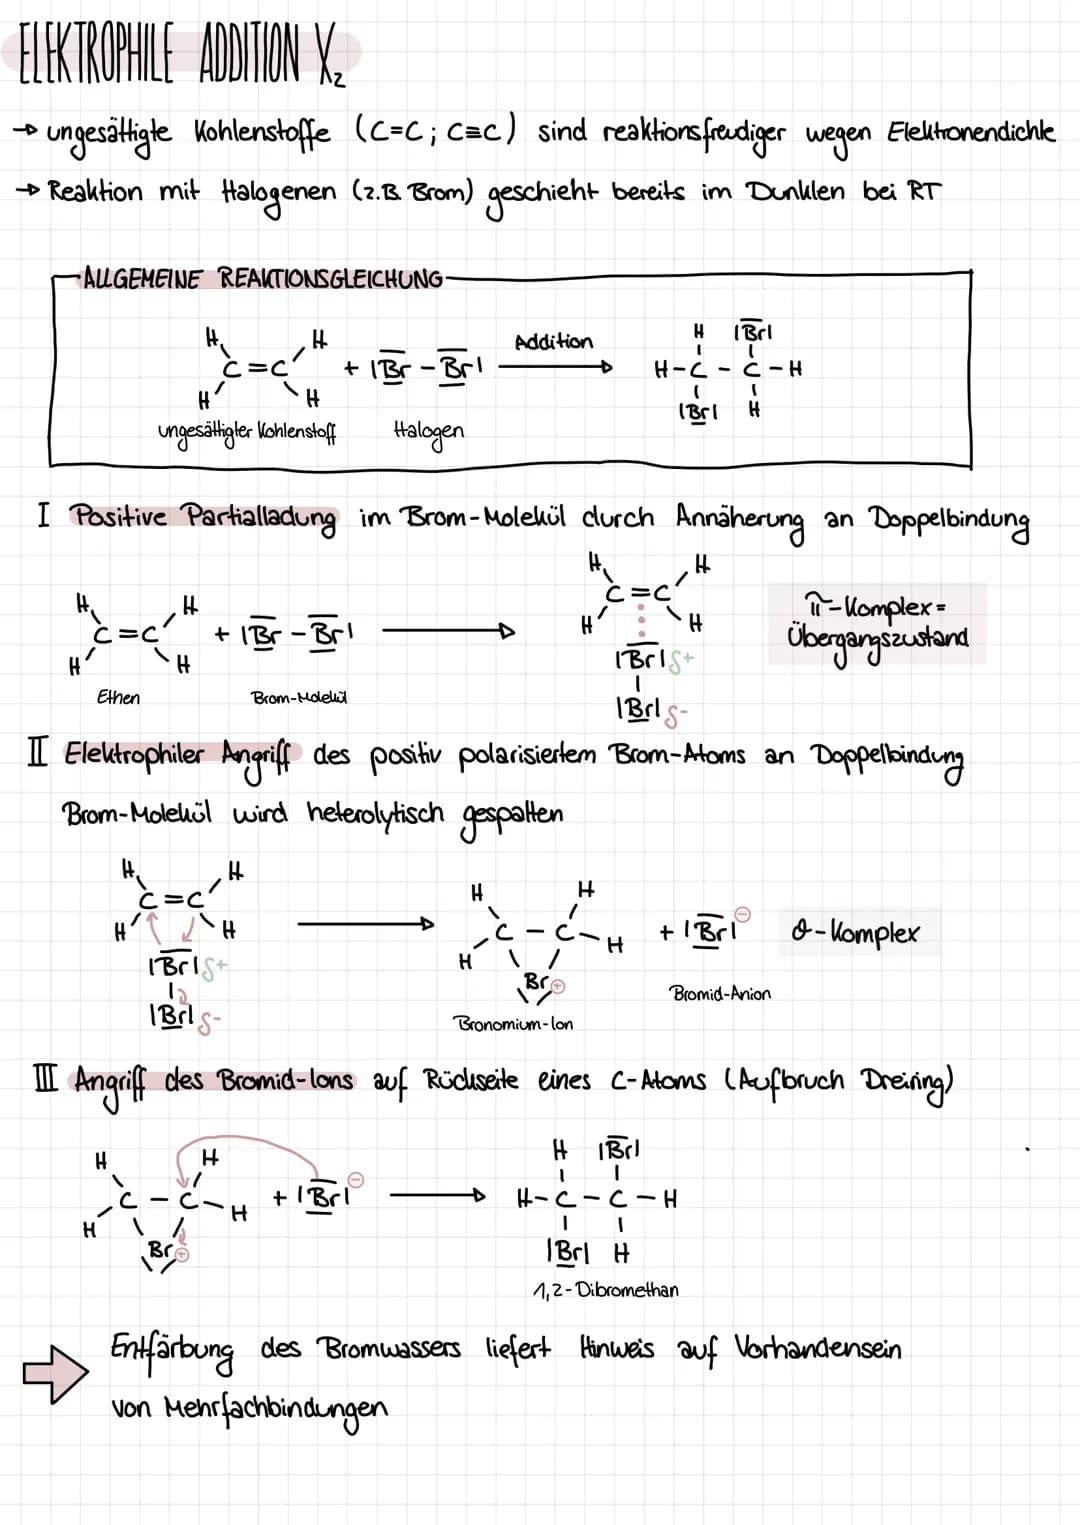 ELEKTROPHILE ADDITION X₂
→ ungesättigte Kohlenstoffe (C=C; C≡C) sind reaktionsfreudiger wegen Elektronendichte
→ Reaktion mit Halogenen (z.B. Brom) geschieht bereits im Dunklen bei RT
ALLGEMEINE REAKTIONSGLEICHUNG
H H H |Br|
C=C + |Br-Br| Addition H-C-C-H
H H |Br| H
ungesättigter Kohlenstoff Halogen
I Positive Partialladung im Brom-Molekül durch Annäherung an Doppelbindung
H H
C=C
H H
H H
C=C + |Br-Br|
H H
|Br| δ+
|Br| δ-
π-Komplex =
Übergangszustand
Ethen Brom-Molekül
II Elektrophiler Angriff des positiv polarisiertem Brom-Atoms an Doppelbindung
Brom-Molekül wird heterolytisch gespalten
H H
C=C
H H
|Br| δ+
|Br| δ-
H H
C-C-H + |Br|⊖ σ-Komplex
H
Br⊕
Bromid-Anion
Bronomium-Ion
III Angriff des Bromid-Ions auf Rückseite eines C-Atoms (Aufbruch Dreiring)
H H H |Br|
C-C-H + |Br|⊖ H-C-C-H
H
Br⊕ |Br| H
1,2-Dibromethan
Entfärbung des Bromwassers liefert Hinweis auf Vorhandensein
von Mehrfachbindungen